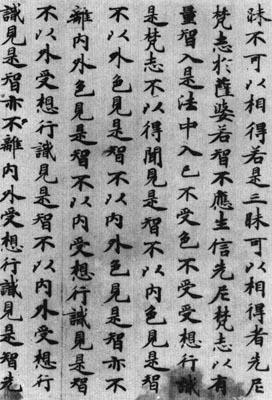 昧不可以相得若是三昧可以相得者先尼
梵志於薩婆若智不應生信先尼梵志以有
量智入是法中入已不受色不受受想行識
是梵志不以得聞見是智不以內色見是智
不以外色見是智不以內外色見是智亦不
離內外色見是智不以內受想行識見是智
不以外受想行識見是智不以內外受想行
識見是智亦不離內外受想行識見是智先